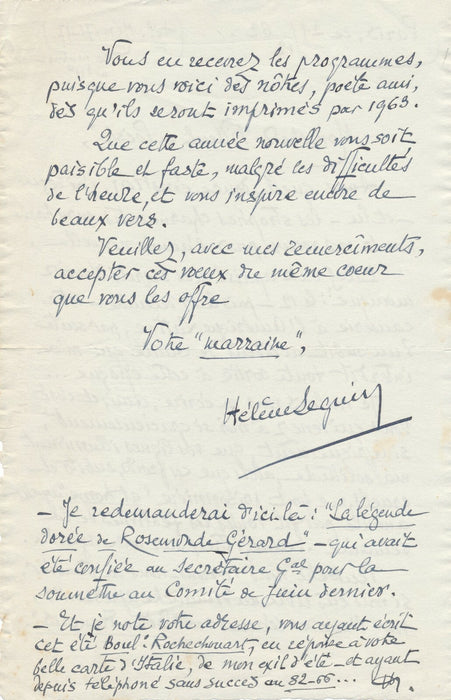 Vous en recevrez les programmes,
puisque vous voici des nôtres, poète ami,
dès qu'ils seront imprimés par 1963.
Que cette année nouvelle vous soit
paisible et faste, malgré les difficultés
de l'heure, et vous inspire encore de
beaux vers.
Veuillez, avec mes remercîments,
accepter ces vœux du même coeur
que vous les offre
Votre "marraine",
Hélène Seguin
- Je redemanderai d'ici-là : "La légende
dorée de Rosemonde Gérard" - qui avait
été confiée au secrétaire Gal pour la
soumettre au Comité de Juin dernier.
- Et je note votre adresse, vous ayant écrit
cet été Boul. Rochechouart, en réponse à votre
belle carte d'Italie, de mon exil d'été - et ayant
depuis téléphoné sans succès au 82-66...